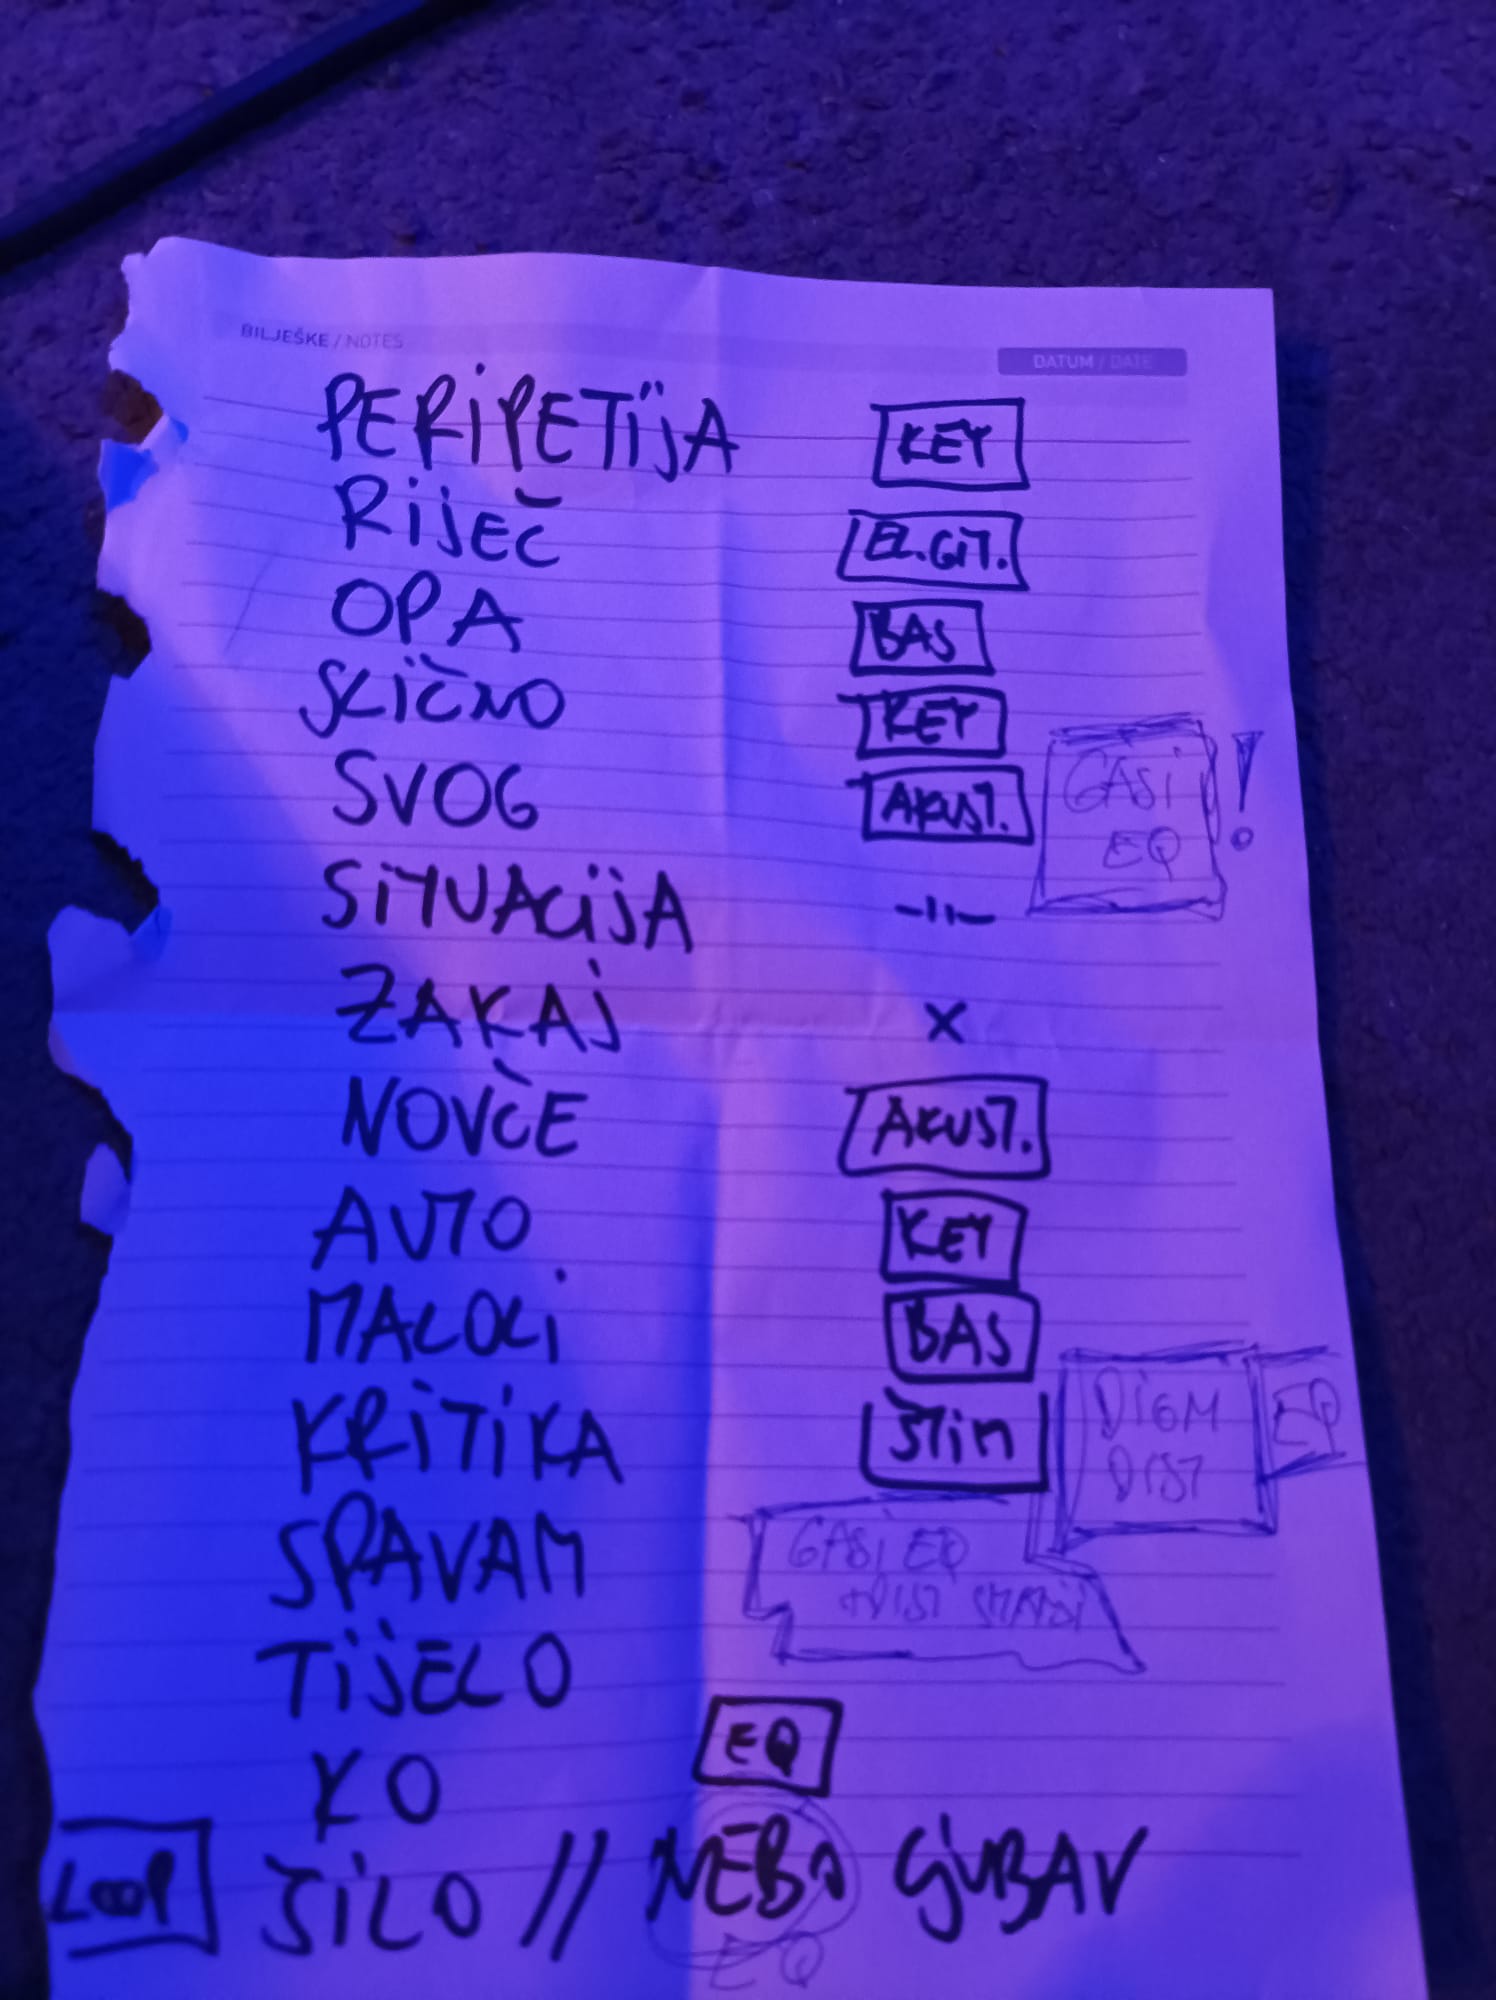 BILJEŠKE / NOTES
DATUM / DATE
PERIPETIJA KEY
RIJEČ EL.GIT.
OPA BAS
SLIČNO KEY
SVOG AKUST. GASI
EQ !
SITUACIJA -II-
ZAKAJ X
NOVČE AKUST.
AUTO KEY
MALOLI BAS
KRITIKA ŠTIM DIGM EQ
DIST
SPAVAM GASI EQ
+DIST
TIJELO
KO EQ
LOOP ŠILO // NEBO LJUBAV
EQ